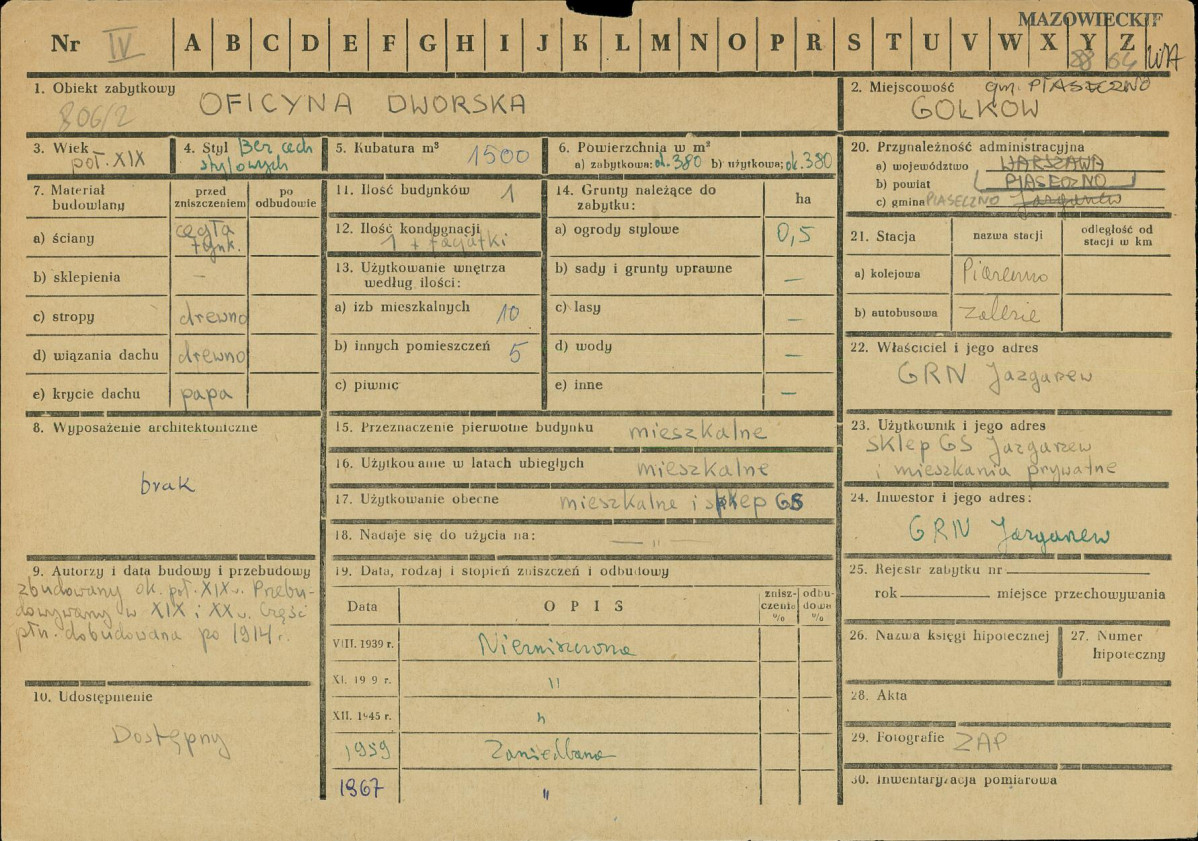 MAZOWIECKIE
Nr IV A B C D E F G H I J K L M N O P R S T U V W X Y Z
88 64
1. Obiekt zabytkowy OFICYNA DWORSKA
806/2
2. Miejscowość gm. PIASECZNO
GOŁKÓW
3. Wiek
poł. XIX
4. Styl Bez cech
stylowych
5. Kubatura m³ 1500
6. Powierzchnia w m²
a) zabytkowa: ok. 380 b) użytkowa: ok. 380
20. Przynależność administracyjna
a) województwo WARSZAWA
b) powiat PIASECZNO
c) gmina PIASECZNO Jazgarzew
7. Materiał budowlany
przed zniszczeniem
po odbudowie
a) ściany cegła tynk.
b) sklepienia —
c) stropy drewno
d) wiązania dachu drewno
e) krycie dachu papa
11. Ilość budynków 1
12. Ilość kondygnacji
1 + facjatki
13. Użytkowanie wnętrza
według ilości:
a) izb mieszkalnych 10
b) innych pomieszczeń 5
c) piwnic
14. Grunty należące do
zabytku: ha
a) ogrody stylowe 0,5
b) sady i grunty uprawne —
c) lasy —
d) wody —
e) inne —
21. Stacja
nazwa stacji
odległość od
stacji w km
a) kolejowa Piaseczno
b) autobusowa Zalesie
22. Właściciel i jego adres
GRN Jazgarzew
8. Wyposażenie architektoniczne
brak
15. Przeznaczenie pierwotne budynku mieszkalne
16. Użytkowanie w latach ubiegłych mieszkalne
17. Użytkowanie obecne mieszkalne i sklep GS
18. Nadaje się do użycia na: — „ —
23. Użytkownik i jego adres
sklep GS Jazgarzew
i mieszkania prywatne
24. Inwestor i jego adres:
GRN Jazgarzew
9. Autorzy i data budowy i przebudowy
zbudowany ok. poł. XIX w. Przebu-
dowywany w XIX i XX w. Część
płn. dobudowana po 1914 r.
19. Data, rodzaj i stopień zniszczeń i odbudowy
Data
OPIS
znisz-
czenia
%
odbu-
dowa
%
VIII. 1939 r. Niezniszczona
XI. 19 9 r. "
XII. 1945 r. "
1959 Zaniedbana
1967 "
25. Rejestr zabytku nr
rok miejsce przechowywania
26. Nazwa księgi hipotecznej
27. Numer
hipoteczny
10. Udostępnienie
Dostępny
28. Akta
29. Fotografie ZAP
30. Inwentaryzacja pomiarowa